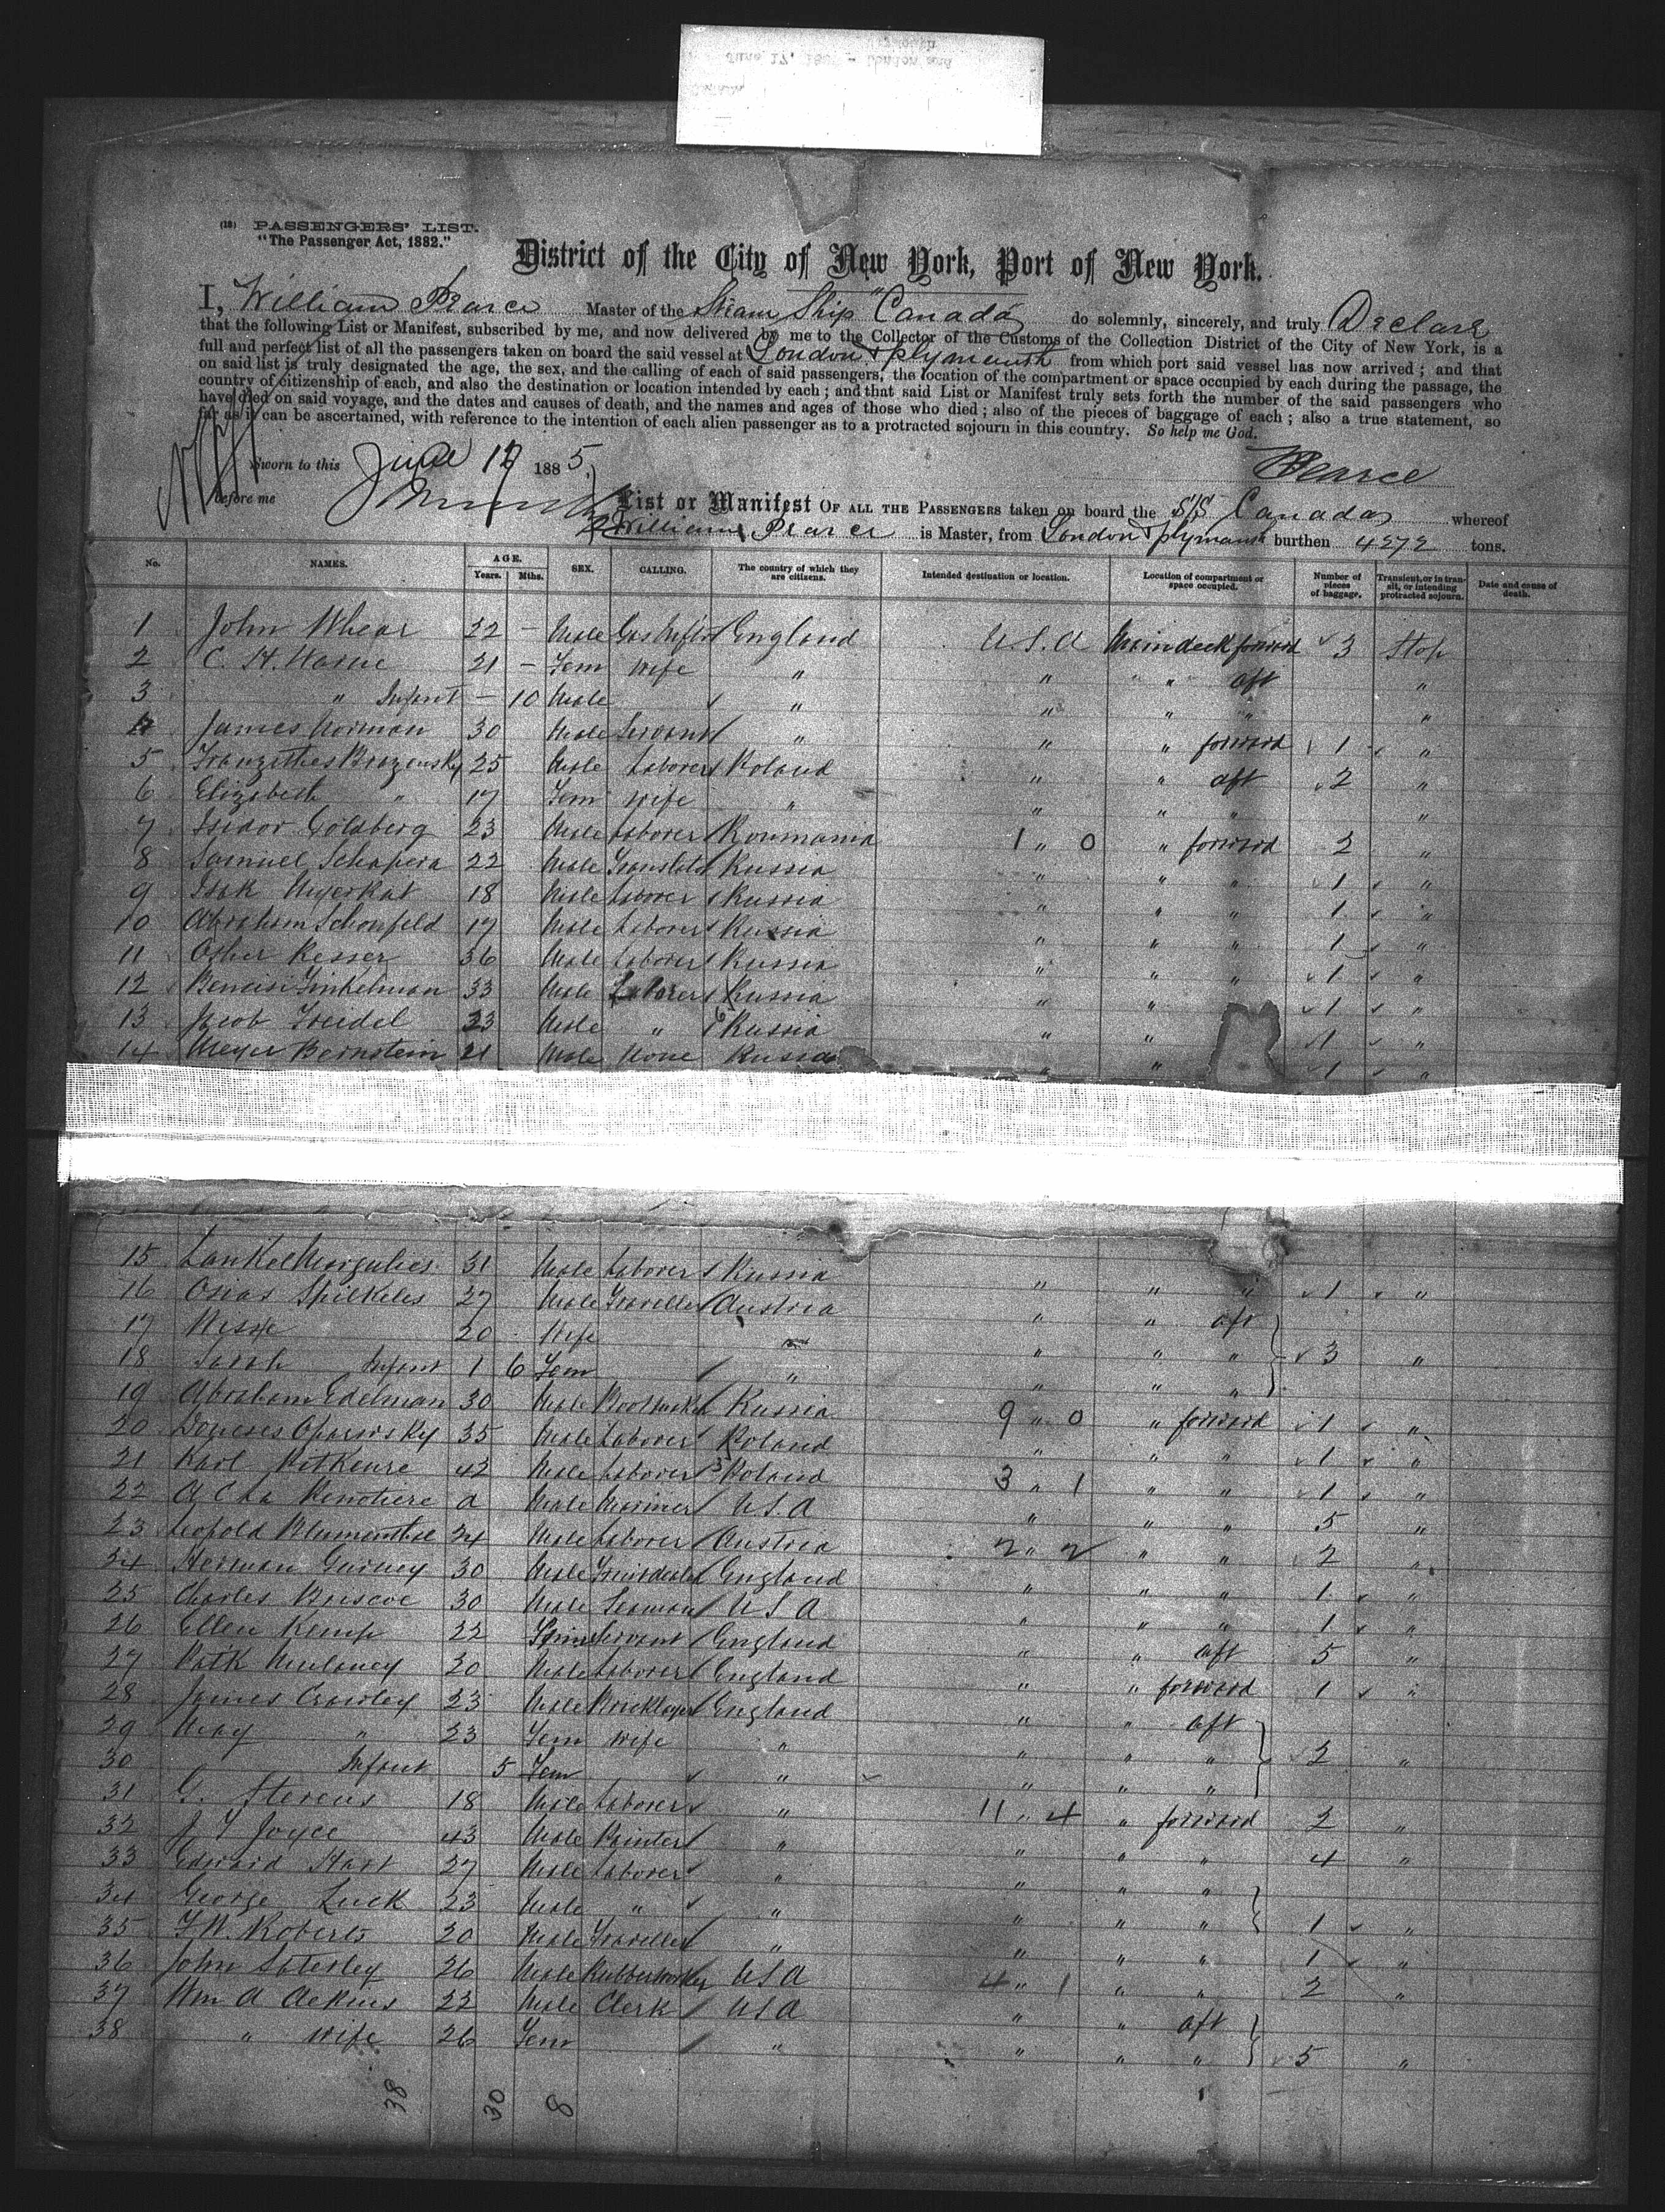 (18) PASSENGERS' LIST.
"The Passenger Act, 1882."
District of the City of New York, Port of New York.
I, William Pearce Master of the Steam Ship "Canada" do solemnly, sincerely, and truly Declare
that the following List or Manifest, subscribed by me, and now delivered by me to the Collector of the Customs of the Collection District of the City of New York, is a
full and perfect list of all the passengers taken on board the said vessel at London & Plymouth from which port said vessel has now arrived; and that
on said list is truly designated the age, the sex, and the calling of each of said passengers, the location of the compartment or space occupied by each during the passage, the
country of citizenship of each, and also the destination or location intended by each; and that said List or Manifest truly sets forth the number of the said passengers who
have died on said voyage, and the dates and causes of death, and the names and ages of those who died; also of the pieces of baggage of each; also a true statement, so
far as it can be ascertained, with reference to the intention of each alien passenger as to a protracted sojourn in this country. So help me God.
Sworn to this June 17 1885 Pearce
before me
List or Manifest OF ALL THE PASSENGERS taken on board the S/S Canada whereof
William Pearce is Master, from London & Plymouth burthen 4272 tons.
No. NAMES. AGE. Years. Mths. SEX. CALLING. The country of which they are citizens. Intended destination or location. Location of compartment or space occupied. Number of pieces of baggage. Transient, or in transit, or intending protracted sojourn. Date and cause of death.
1 John Whear 22 - Male Gasfitter England U.S.A Maindeck forward 3 Stop
2 C. H. 21 - Fem Wife " " " aft "
3 " Infant - 10 Male " " " " "
4 James Norman 30 Male Servant " " " forward 1 "
5 25 Male Laborer Poland " " aft 2 "
6 Elizabeth " 17 Fem Wife " " " " "
7 Isidor Goldberg 23 Male Laborer Roumania 1 " 0 " forward 2 "
8 Samuel Schapera 22 Male Translator Russia " " " 1 "
9 Isak 18 Male Laborer Russia " " " 1 "
10 Abraham Schonfeld 17 Male Laborer Russia " " " 1 "
11 Osher Resser 36 Male Laborer Russia " " " 1 "
12 Finkelman 33 Male Laborer Russia " " 1 "
13 Jacob Freidel 23 Male " 6 Russia " " 1 "
14 Meyer Bernstein 21 Male None Russia " " 1 "
15 Margulies 31 Male Laborer Russia " " " 1 "
16 Osias Spilkeles 27 Male Traveller Austria " " aft
17 20 Wife " " " " 3 "
18 Sarah Infant 1 6 Fem " " " "
19 Abraham Edelman 30 Male Russia 9 " 0 " forward 1 "
20 35 Male Laborer Poland " " " 1 "
21 Karl 42 Male Laborer 3 Poland 3 " 1 " " 1 "
22 A C La a Male Mariner U.S.A " " " 5 "
23 Leopold Blumenthal 24 Male Laborer Austria 2 " 2 " " 2 "
24 Herman Gurney 30 Male Fruitdealer England " " " 1 "
25 Charles Briscoe 30 Male Seaman U S A " " " 1 "
26 Ellen Kemp 22 Spin Servant England " " aft 5 "
27 Patk Mulaney 20 Male Laborer England " " forward 1 "
28 James Crowley 23 Male Bricklayer England " " aft
29 May " 23 Fem Wife " " " " 2 "
30 Infant 5 Fem " " " "
31 G. Stevens 18 Male Laborer " 11 " 4 " forward 2 "
32 J T Joyce 43 Male Painter " " " " 4 "
33 Edward Hart 27 Male Laborer " " " "
34 George Luck 23 Male " " " " " 1 "
35 F. W. Roberts 20 Male Traveller " " " " 1 "
36 John Saterley 26 Male Rubberworker USA 4 " 1 " " 2 "
37 Wm A Aekins 22 Male Clerk USA " " aft
38 " Wife 26 Fem " " " " 5 "
38 30 8